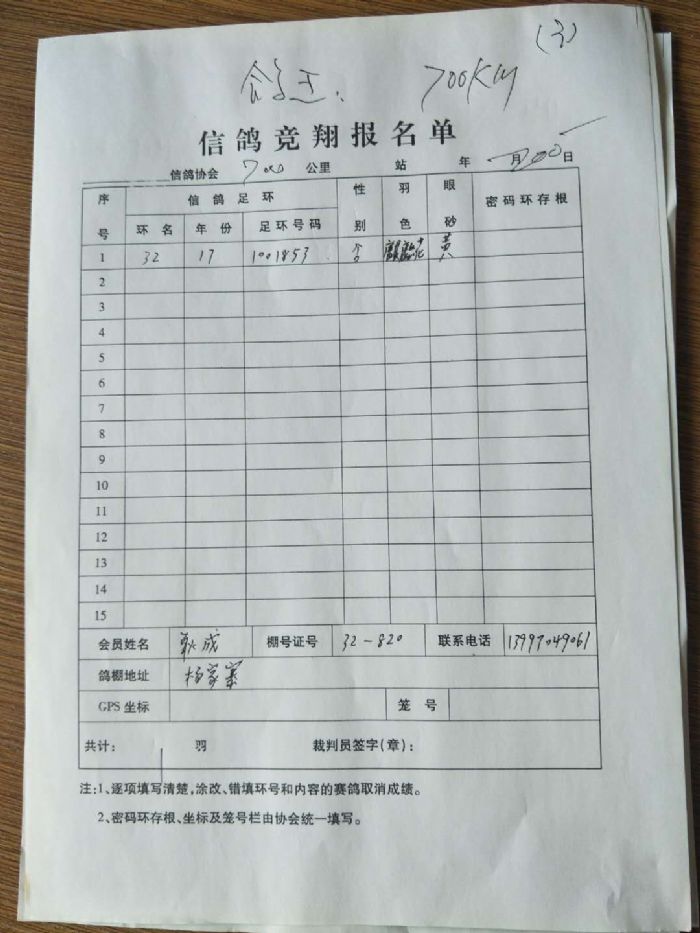 (3)
鸽王. 700KM
信鸽竞翔报名单
信鸽协会 700 公里 站 年 月 日
序号 信鸽足环 性别 羽色 眼砂 密码环存根
环名 年份 足环号码
1 32 17 1001853 黄
2
3
4
5
6
7
8
9
10
11
12
13
14
15
会员姓名 耿成 棚号证号 32-820 联系电话 13997049061
鸽棚地址 杨家寨
GPS 坐标 笼号
共计: 羽 裁判员签字(章):
注:1、逐项填写清楚,涂改、错填环号和内容的赛鸽取消成绩。
2、密码环存根、坐标及笼号栏由协会统一填写。